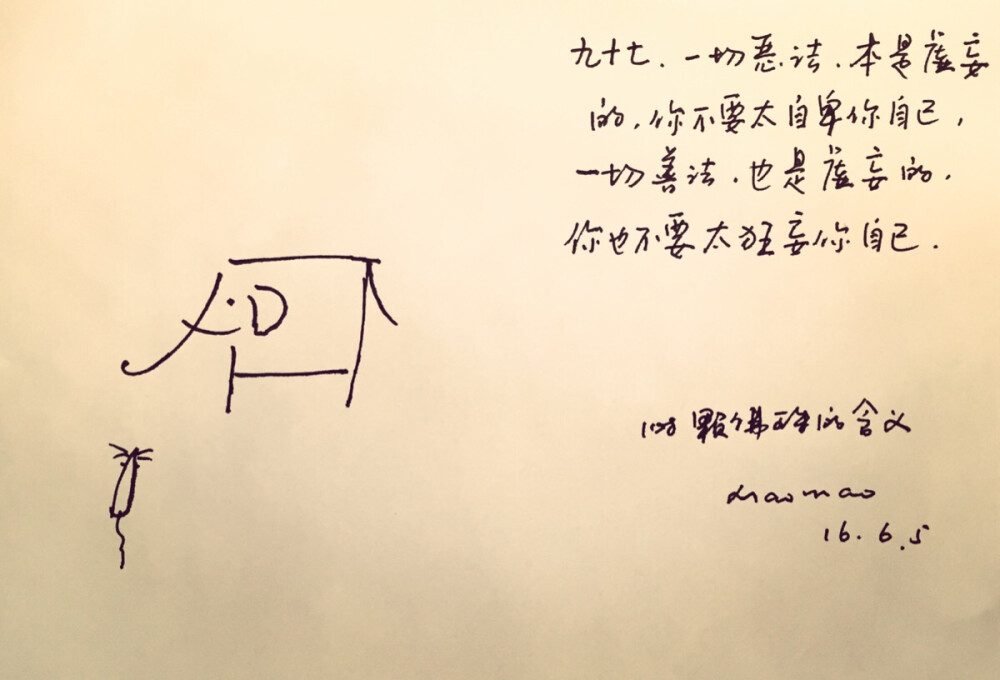 九十七、一切恶法、本是虚妄
的，你不要太自卑你自己，
一切善法、也是虚妄的，
你也不要太狂妄你自己．
108颗佛珠的含义
maomao
16.6.5